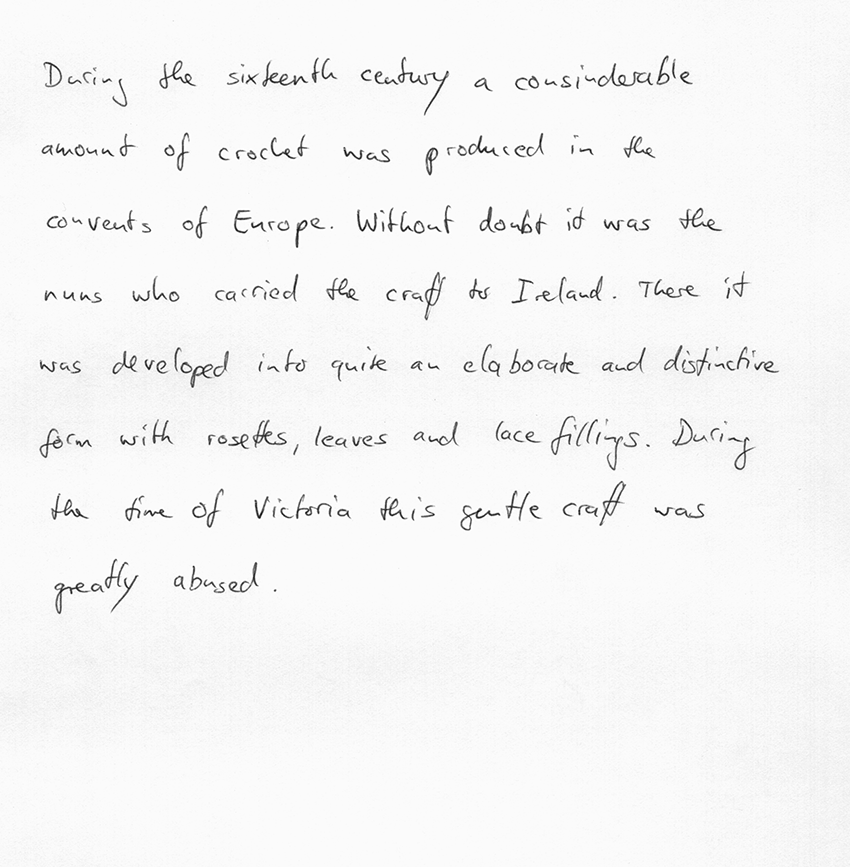 During the sixteenth century a consinderable
amount of crochet was produced in the
convents of Europe. Without doubt it was the
nuns who carried the craft to Ireland. There it
was developed into quite an elaborate and distinctive
form with rosettes, leaves and lace fillings. During
the time of Victoria this gentle craft was
greatly abused.